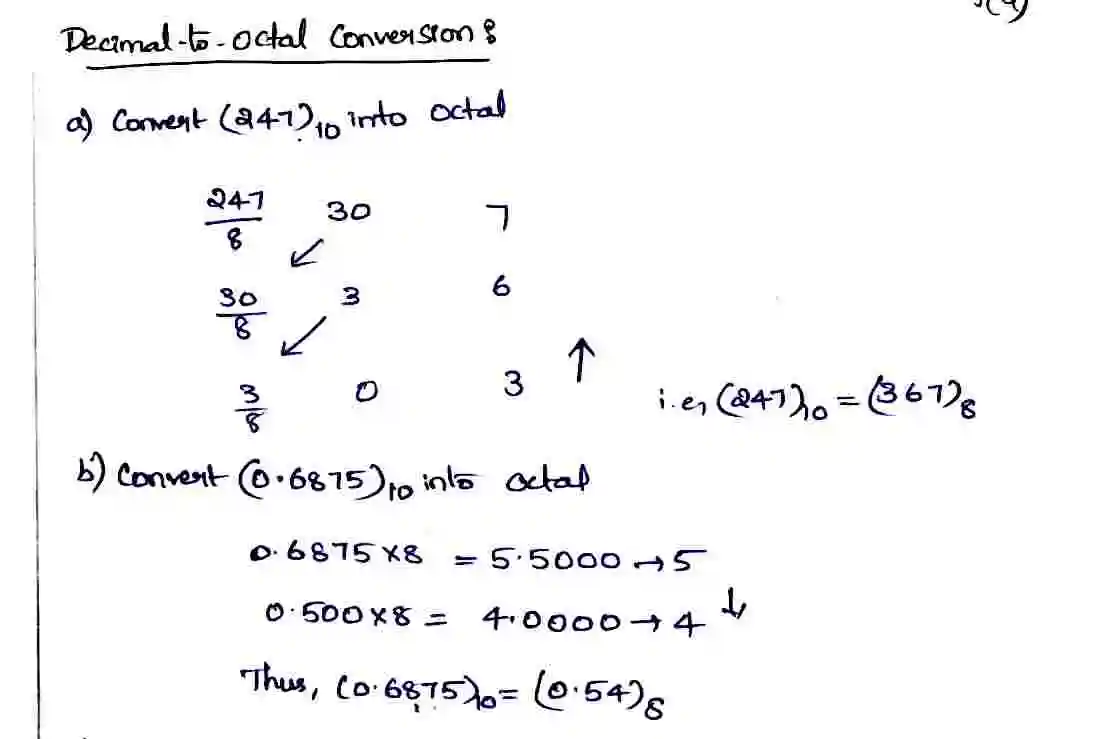 Decimal-to-Octal Conversion :
a) Convert (247)₁₀ into octal
247/8 30 7
30/8 3 6
3/8 0 3 ↑
i.e, (247)₁₀ = (367)₈
b) Convert (0.6875)₁₀ into octal
0.6875 x 8 = 5.5000 → 5
0.500 x 8 = 4.0000 → 4 ↓
Thus, (0.6875)₁₀ = (0.54)₈